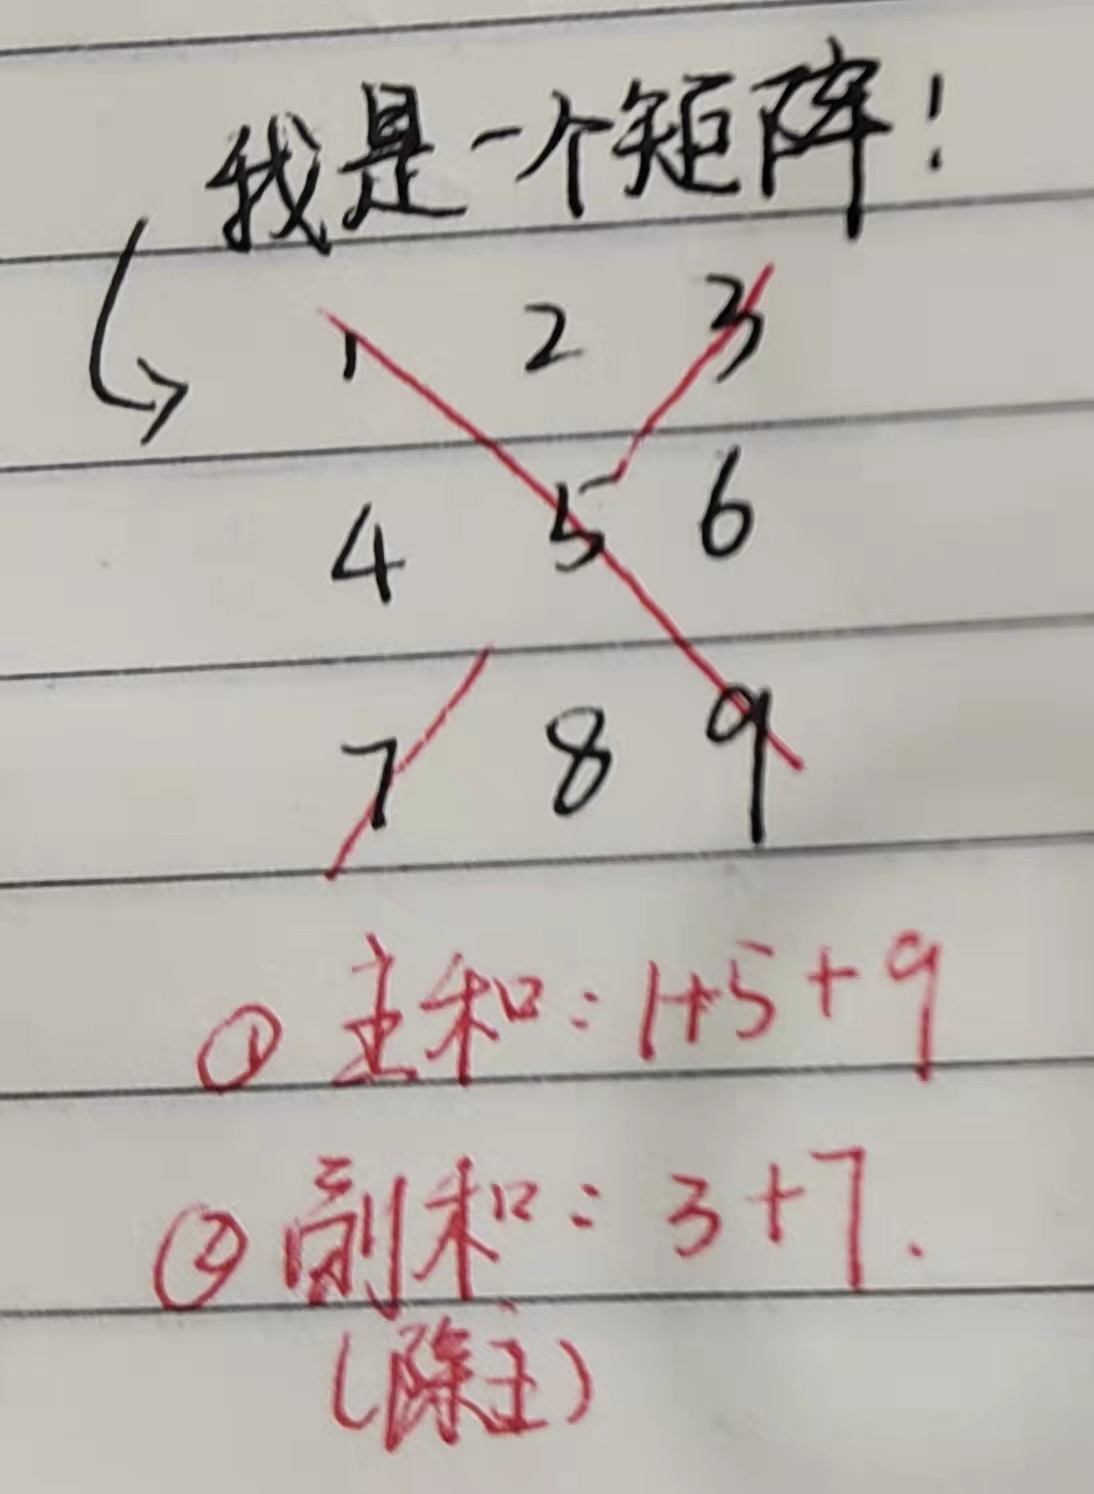 我是一个矩阵!
1 2 3
4 5 6
7 8 9
① 主和: 1+5+9
② 副和: 3+7.
(除主)